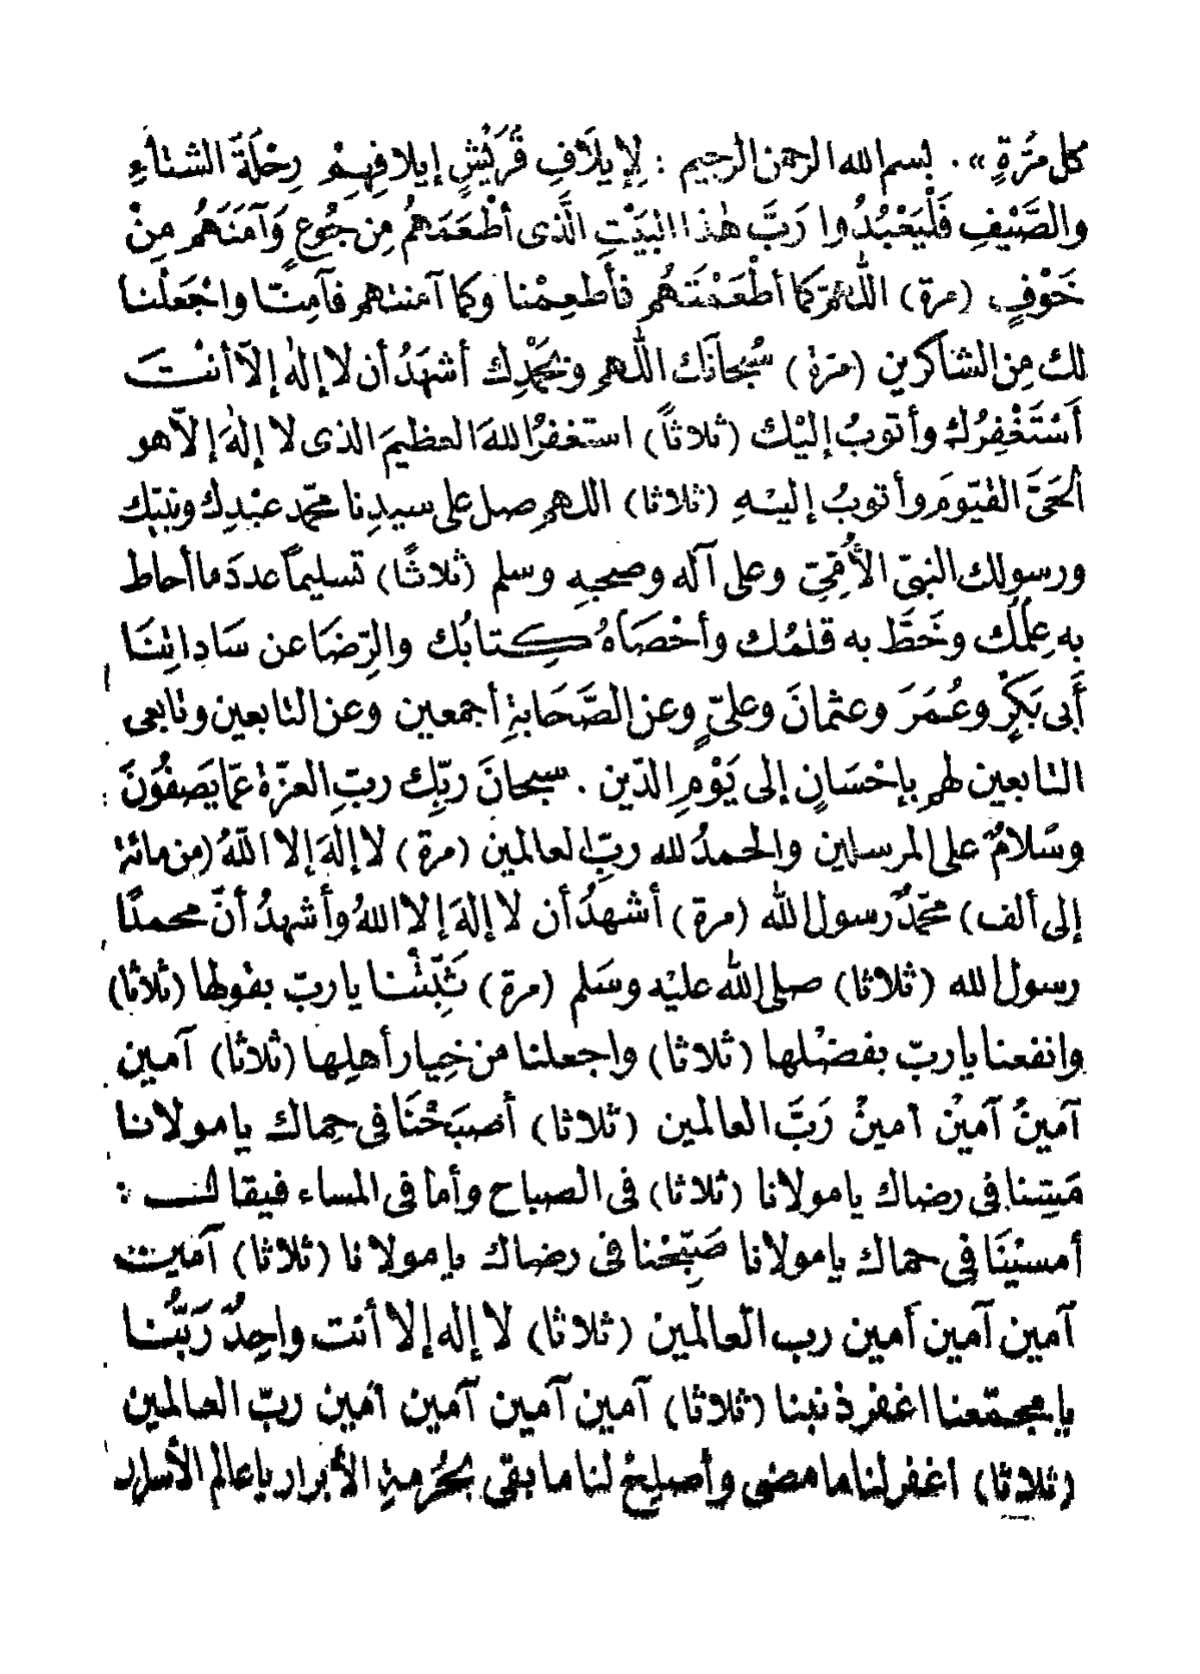 كل مَرَّةٍ ». بسم الله الرحمن الرحيم : لِإِيلَافِ قُرَيْشٍ إيلافِهِمْ رِحْلَةَ الشتاءِ
والصَّيْفِ فَلْيَعْبُدُوا رَبَّ هٰذا البَيْتِ الَّذى أطْعَمَهُمْ مِن جُوعٍ وَآمَنَهُم مِنْ
خَوْفٍ (مرة) اللهُمَّ كما أطْعَمْتَهُم فأطعِمْنا وكما آمنتهم فآمِنّا واجْعَلْنا
لك مِن الشاكرين (مَرّة) سُبْحَانَك اللهم وبحَمْدِك أشهَدُ أن لا إلهَ إلاّ أنْتَ
أسْتَغْفِرُك وأتوبُ إليْك (ثلاثاً) استغفرُ اللهَ العظيمَ الذى لا إلهَ إلاّ هو
الحَىَّ القَيّومَ وأتوبُ إليْهِ (ثلاثا) اللهم صل على سيدِنا محمّد عبْدِك ونبيّك
ورسولِك النبىّ الأُمِّىّ وعلى آله وصحبِهِ وسلم (ثلاثًا) تسليماً عددَ ما أحاط
به عِلمُك وخَطَّ به قلمُك وأحْصَاهُ كِتابُك والرِّضَا عن سَادِاتِنَا
أَبى بَكْرٍ وعُمَرَ وعثمانَ وعلىٍّ وعن الصَّحَابةِ أجمعين وعن التابعين وتابعى
التابعين لهم بإحْسَانٍ إلى يَوْمِ الدّين . سبحانَ ربِّك ربِّ العزّة عمّا يَصفُونَ
وسَلامٌ على المرسلين والحمدُ لله ربِّ العالمين (مرة) لا إلهَ إلا اللهُ (من مائة
إلى ألف) محمّدٌ رسول الله (مرة) أشهدُ أن لا إلهَ إلا اللهُ وأشهدُ أنّ محمدًا
رسول الله (ثلاثا) صلى الله عليْه وسَلم (مرة) ثَبِّتْنا يا ربّ بقولها (ثلاثا)
وانفعنا يا ربّ بفضْلها (ثلاثا) واجعلنا من خِيار أهلِها (ثلاثا) آمين
آمينْ آمينْ آمينْ رَبَّ العالمين (ثلاثا) أصبَحْنَا فى حِماك يا مولانا
مَسِّنا فى رضاك يا مولانا (ثلاثا) فى الصباح وأما فى المساء فيقالــ :
أمسيْنَا فى حماك يا مولانا صَبِّحْنا فى رضاك يا مولانا (ثلاثا) آمين
آمين آمين أمين رب العالمين (ثلاثا) لا إله إلا أنت واحِدٌ رَبُّنا
يا مجمّعنا اغفر ذنبنا (ثلاثا) آمين آمين آمين آمين ربّ العالمين
(ثلاثا) اغفر لنا ما مضى وأصلِحْ لنا ما بقى بحُرْمةِ الأبرار يا عالم الأسرار